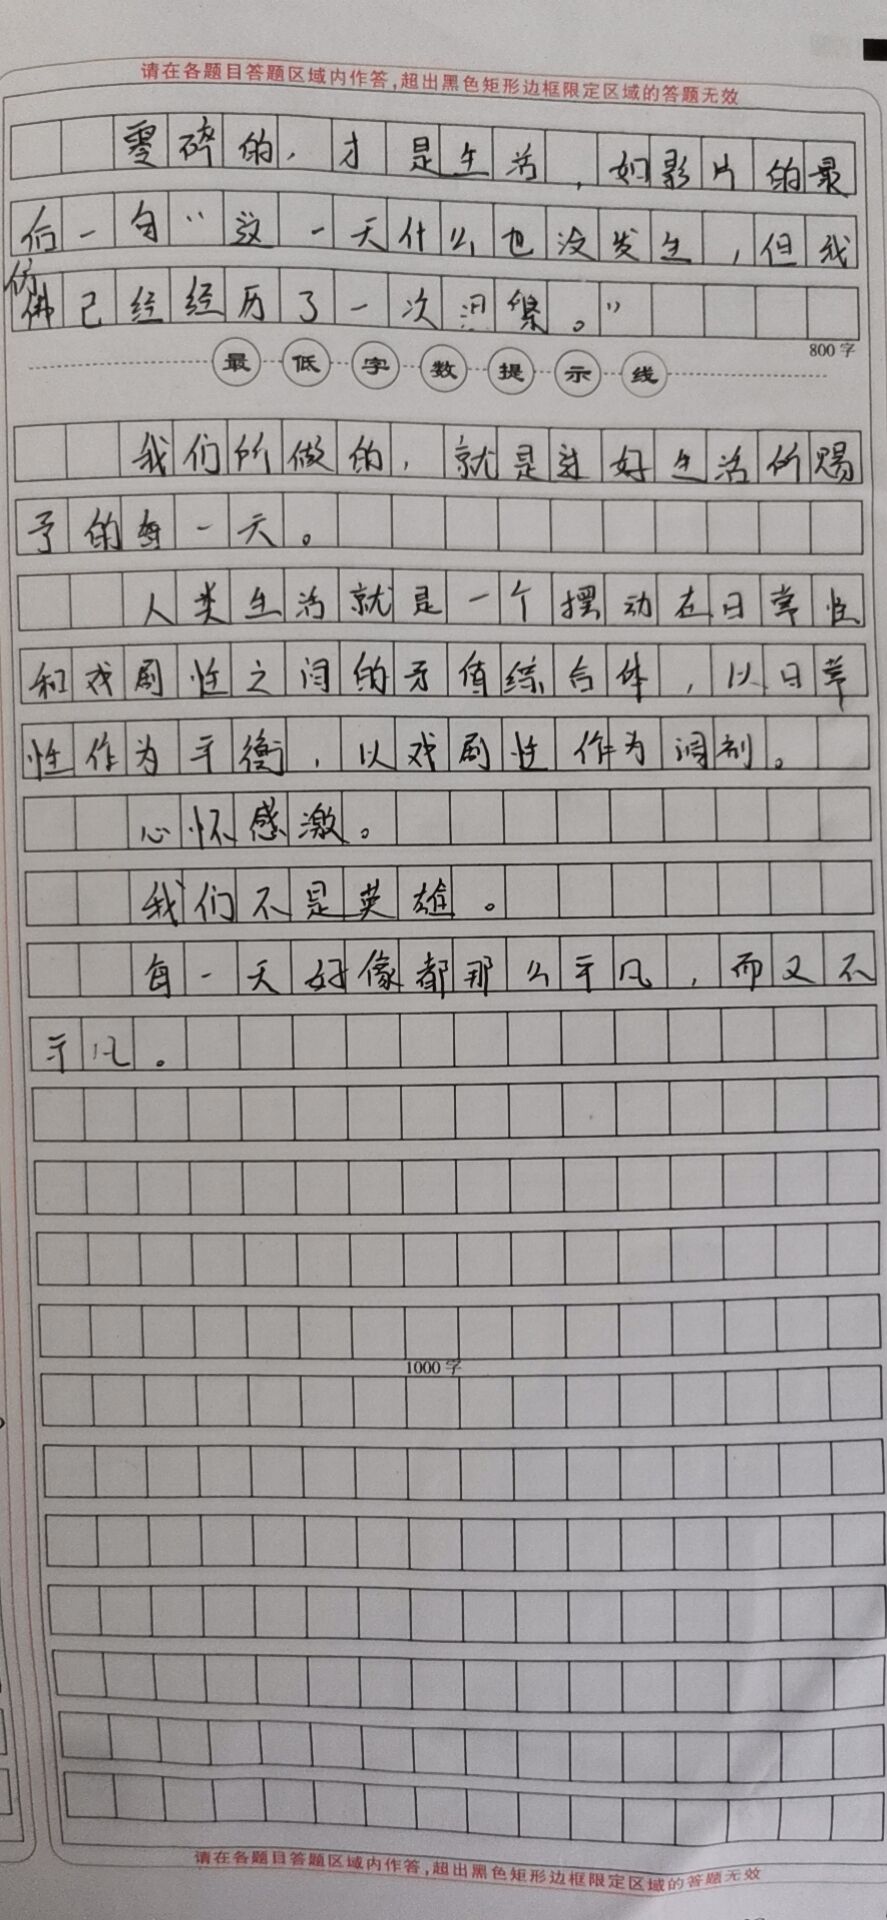 请在各题目答题区域内作答,超出黑色矩形边框限定区域的答题无效
零碎的,才是生活,如影片的最
后一句“这一天什么也没发生,但我
仿佛已经经历了一次洄。”
800字
最低字数提示线
我们所做的,就是过好生活所赐
予的每一天。
人类生活就是一个摆动在日常性
和戏剧性之间的矛值综合体,以日常
性作为平衡,以戏剧性作为调剂。
心怀感激。
我们不是英雄。
每一天好像都那么平凡,而又不
平凡。
1000字
请在各题目答题区域内作答,超出黑色矩形边框限定区域的答题无效